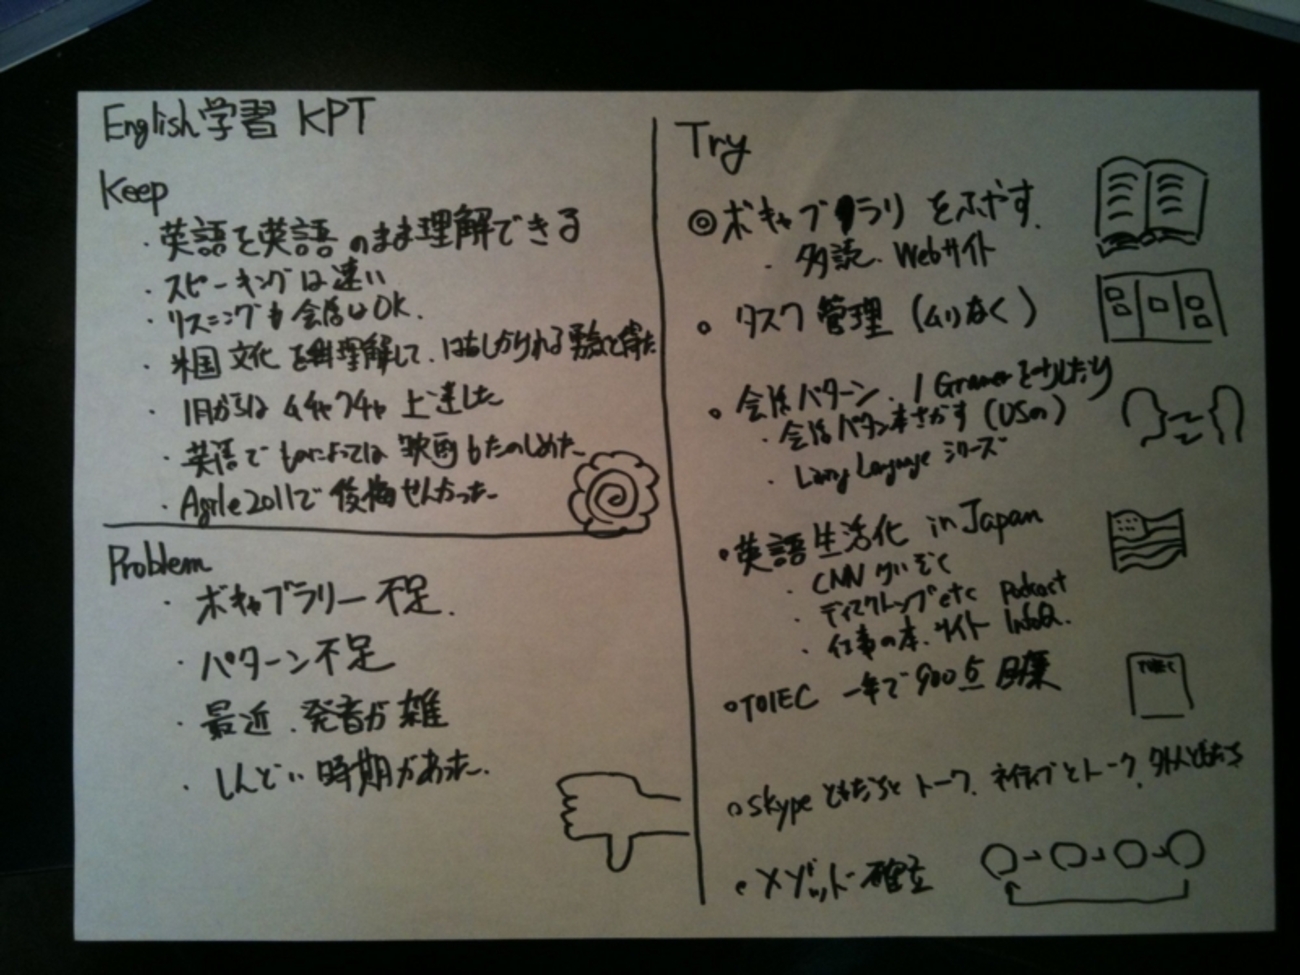 English学習 KPT
Keep
・英語を英語のまま理解できる
・スピーキングは速い
・リスニングも会話はOK.
・米国文化を理解して、はなしかけれる勇気を得た
・1月からはムチャクチャ上達した
・英語でものによっては映画もたのしめた
・Agile2011で後悔せんかった
Problem
・ボキャブラリー不足.
・パターン不足
・最近、発音が雑
・しんどい時期があった.
Try
◎ボキャブラリをふやす.
・多読、Webサイト
○タスク管理(ムリなく)
○会話パターン、1 Gramerをナしたり
・会話パタン本さがす(USの)
・Language シリーズ
○英語生活化 in Japan
・CNN けいぞく
・ディスクトップetc Podcast
・仕事の本、サイト InfoQ.
○TOIEC 一年で900点 目標
TOIEC
○Skype ともだちとトーク、ネイティブとトーク、外人ともだち
○メソッド確立